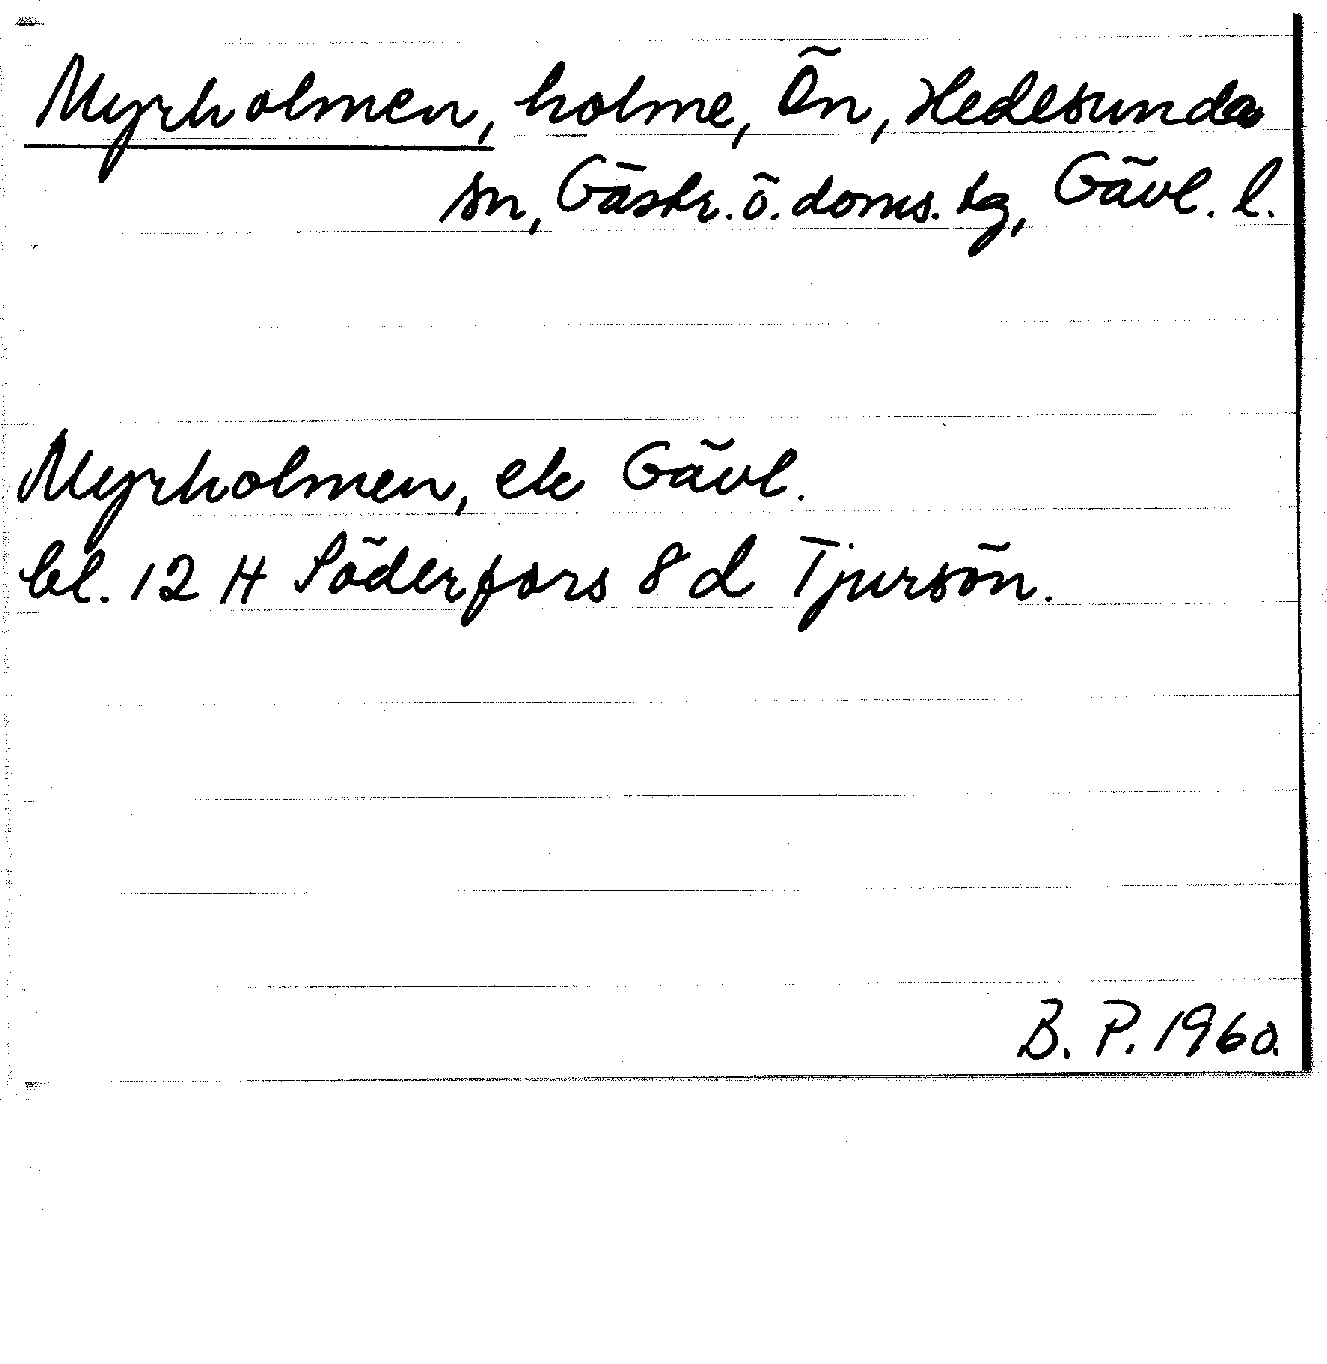 Myrholmen, holme, Ön, Hedesunda
sn, Gästr. ö. doms. tg, Gävl. l.
Myrholmen, ek Gävl.
bl. 12 H Söderfors 8 d Tjursön.
B. P. 1960.